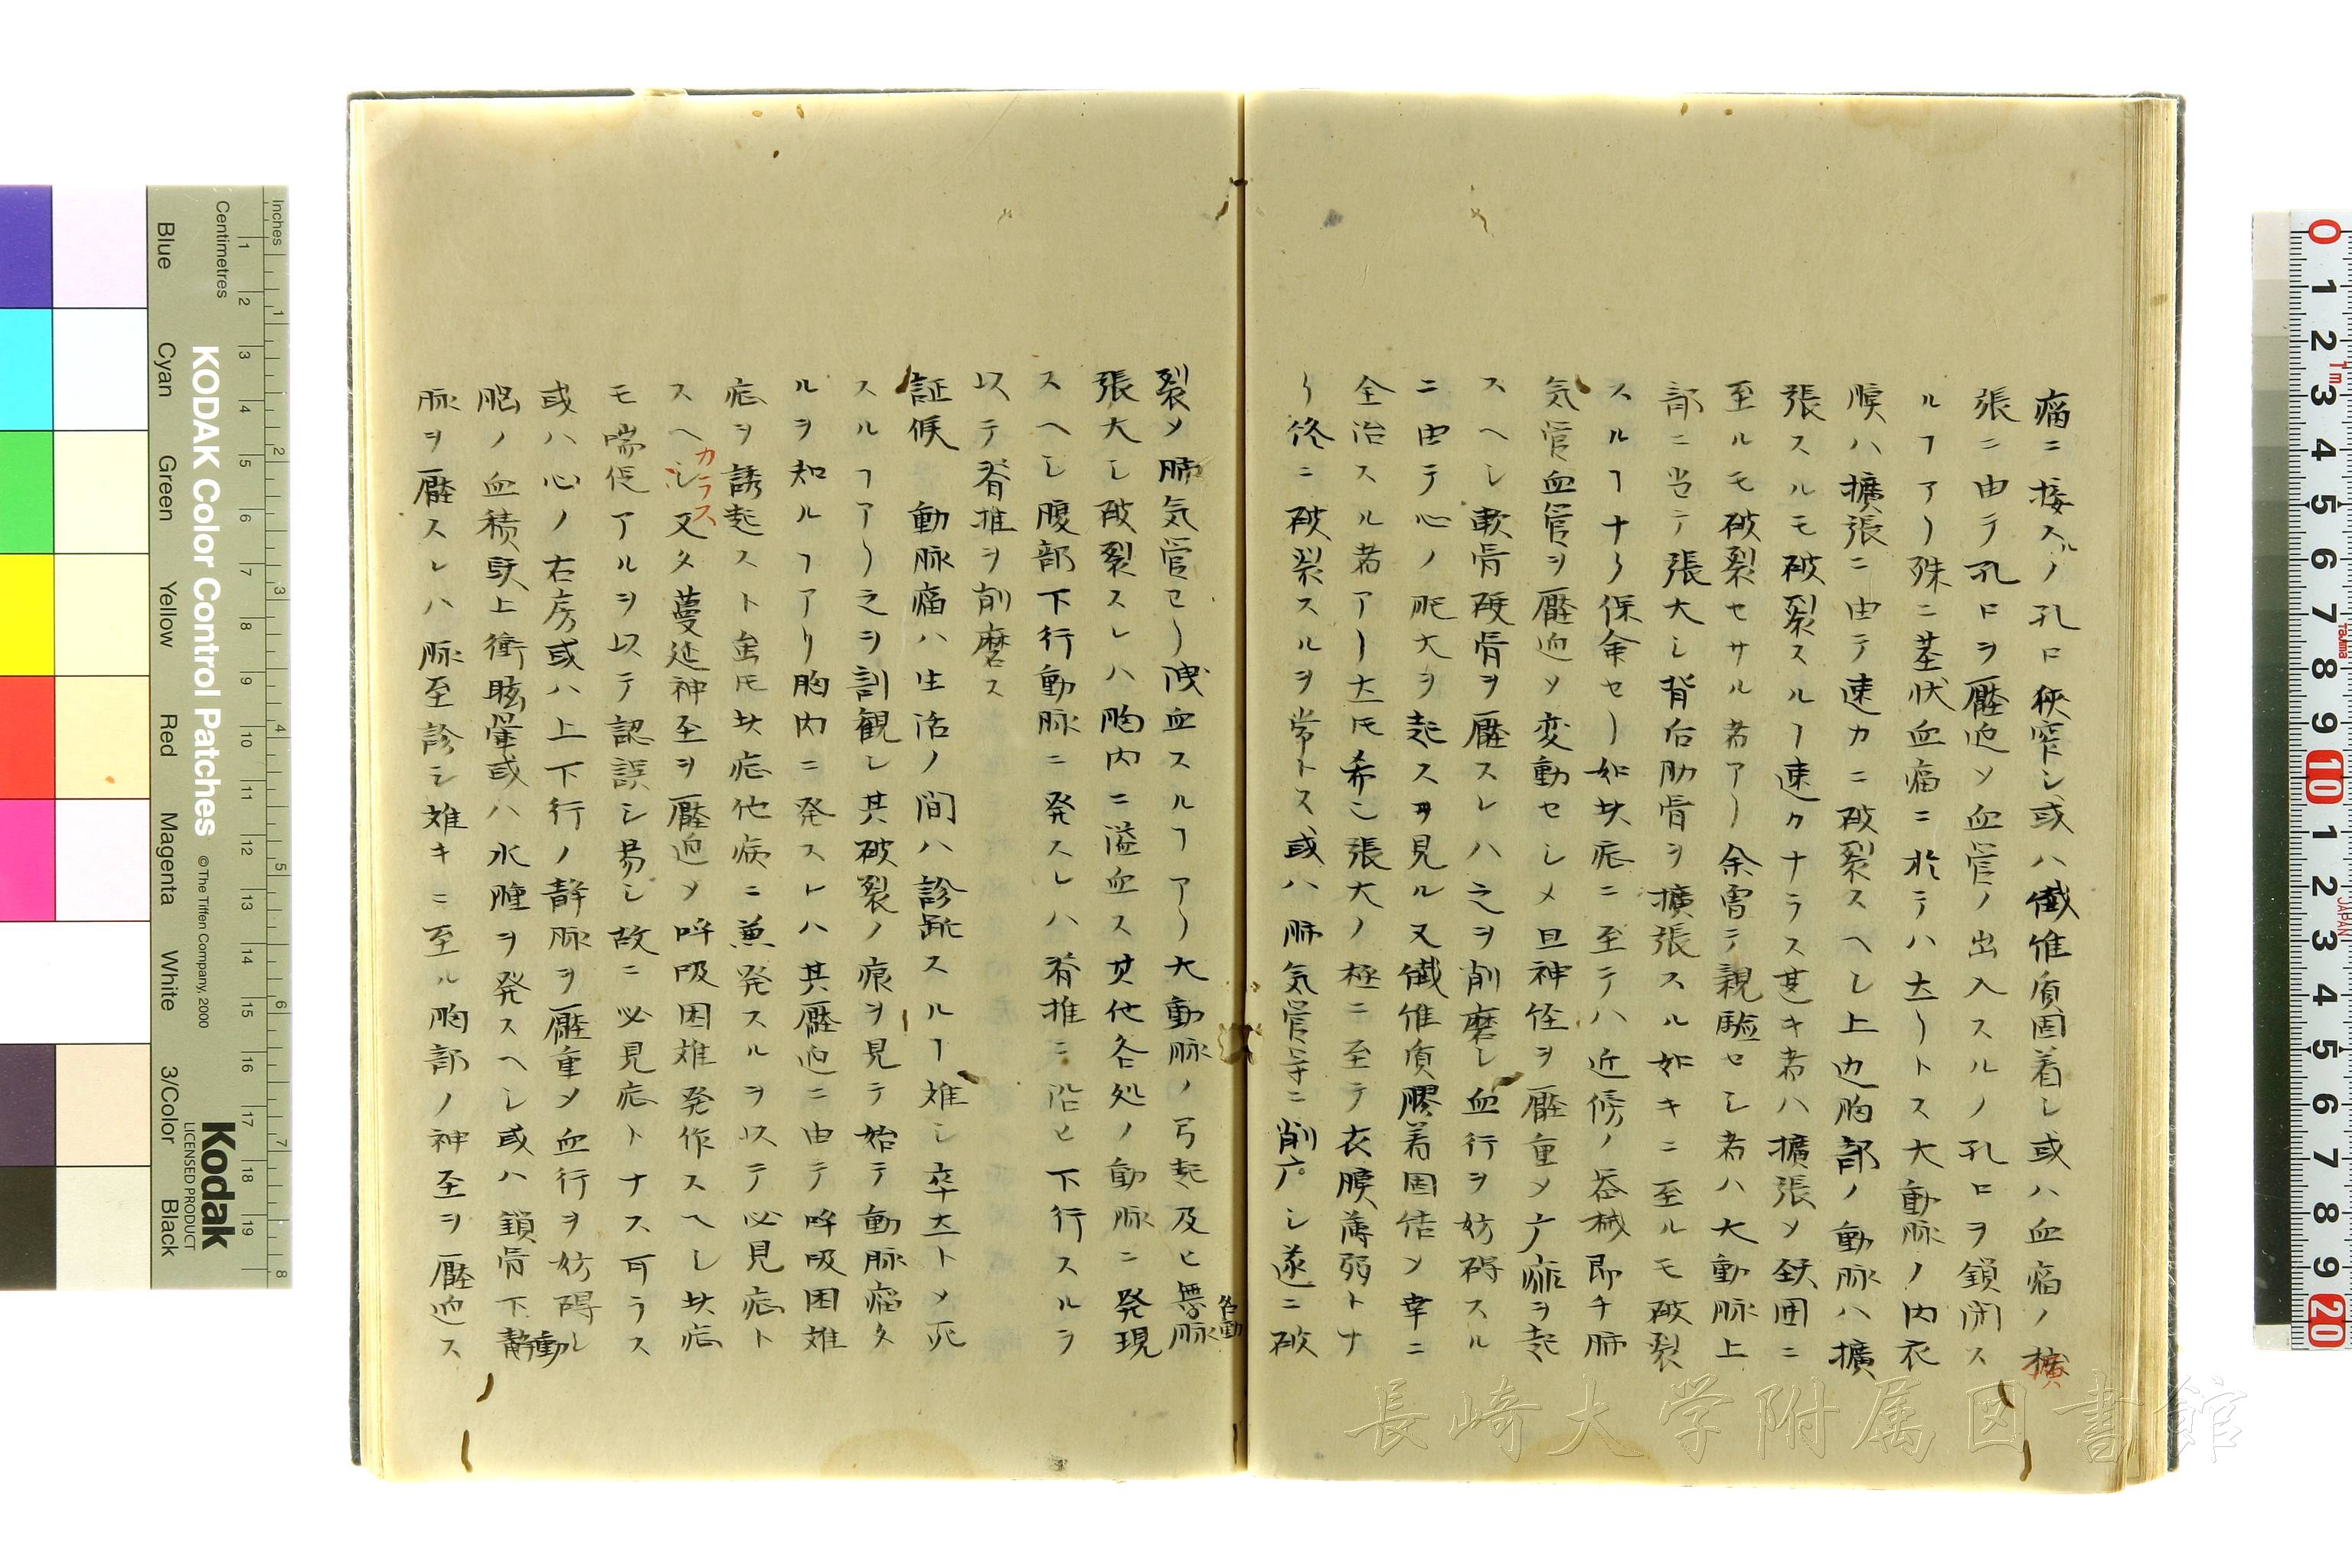 瘤ニ接スルノ孔口狭窄シ或ハ繊維質固着シ或ハ血瘤ノ擴
張ニ由テ孔口ヲ壓迫ソ血管ノ出入スルノ孔口ヲ鎖閉ス
ルヿアリ殊ニ茎状血瘤ニ於テハ大リトス大動脉ノ内衣
膜ハ擴張ニ由テ速カニ破裂スヘシ上辺胸部ノ動脉ハ擴
張スルモ破裂スルヿ速クナラス甚キ者ハ擴張ソ鉄囲ニ
至ルモ破裂セサル者アリ余曽テ親驗セシ者ハ大動脉上
部ニ当テ張大シ背后肋骨ヲ擴張スル如キニ至ルモ破裂
スルヿナク保余セリ如此症ニ至テハ近傍ノ器械即チ肺
気管血管ヲ壓迫ソ変動セシメ且神侄ヲ壓重ソ广痲ヲ起
スヘシ軟骨硬骨ヲ壓スレハ之ヲ削磨シ血行ヲ妨碍スル
ニ由テ心ノ肥大ヲ起スヲ見ル又繊維質膠着固结ソ幸ニ
全治スル者アリ𪜈希ニ張大ノ極ニ至テ衣膜薄弱トナ
リ终ニ破裂スルヲ常トス或ハ肺気管等ニ削广シ遂ニ破
裂ソ肺気管ヨリ洩血スルヿアリ大動脉ノ弓起及ヒ無名動脉
張大シ破裂スレハ胸内ニ溢血ス其他各処ノ動脉ニ発現
スヘシ腹部下行動脉ニ発スレハ脊推ニ沿ヒ下行スルヲ
以テ脊推ヲ削磨ス
証候 動脉瘤ハ生活ノ間ハ診㫁スルヿ難シ卒去ソ死
スルヿアリ之ヲ剖観シ其破裂ノ痕ヲ見テ始テ動脉瘤タ
ルヲ知ルヿアリ胸内ニ発スレハ其壓迫ニ由テ呼吸困難
症ヲ誘起スト虽𪜈此症他病ニ兼発スルヲ以テ必見症ト
スヘシカラス又タ蔓延神至ヲ壓迫ソ呼吸困難発作スヘシ此症
モ喘促アルヲ以テ認誤シ易シ故ニ必見症トナス可ラス
或ハ心ノ右房或ハ上下行ノ静脉ヲ壓重ソ血行ヲ妨碍シ
脳ノ血積欤上衝眩暈或ハ水腫ヲ発スヘシ或ハ鎖骨下動静
脉ヲ壓スレハ脉至診シ難キニ至ル胸部ノ神至ヲ壓迫ス
長崎大学附属図書館
KODAK Color Control Patches
© The Tiffen Company, 2000
Kodak
LICENSED PRODUCT
Inches
Centimetres
Blue Cyan Green Yellow Red Magenta White 3/Color Black